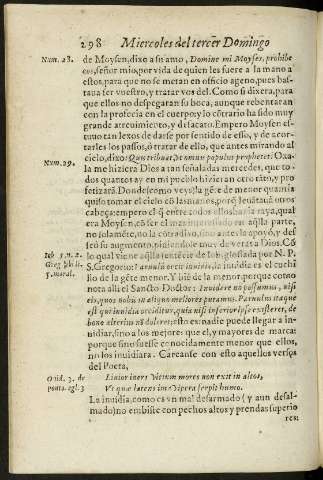 298 Miercoles del tercer Domingo
Num. 28. de Moysen, dixo a su amo, Domine mi Moyses, prohibe
eos, señor mio, por vida de quien les fuere a la mano a
estos, para que no se metan en officio ageno, pues bas-
taua ser vuestro, y tratar vos del. Como si dixera, para
que ellos no despegaran su boca, aunque rebentaran
con la profecia en el cuerpo, y lo cõtrario ha sido muy
grande atreuimiento, y desacato. Empero Moysen es-
tuuo tan lexos de darse por sentido de esso, y de acor-
tarles los passos, ò tratar de ello, que antes mirando al
Num. 29. cielo, dixo: Quis tribuat, ut omnis populus prophetet. Oxa-
la me hiziera Dios a tan señaladas mercedes, que to-
dos quantos ay en mi pueblo hizieran otro tãto, y pro-
fetizarã. Donde
quiso tomar el cielo cõ las manos, porq̃ leuãtauã otros
cabeça: empero el q̃ entre todos ellos hazia raya, qual
era Moysen, cõ ser el mas interessado en aq̃lla parte,
no solamẽte, no la cõtra apoyò, y des
seò su augmento,
Iob 5. n. 2. lo qual viene aq̃lla sentẽcia de Iob, glossada por N. P.
Greg. lib. 5. S. Gregorio:
5. moral. llo de la gẽte menor. Y dize de la menor, porque como
nota alli el Sancto Doctor: Inuidere non possumus, nisi
eis, quos nobis in aliquo meliores putamus. Paruulus itaque
est qui inuidia occiditur, quia nisi inferior ipse existeret, de
bono alterius nõ doleret: esto es: nadie puede llegar a in-
uidiar, sino a los mejores que el, y mayores de marca:
porque sino fuesse conocidamente menor que ellos,
no los inuidiara. Careanse con esto aquellos versos
del Poeta,
Ouid. 3. de Liuor iners vitium mores non exit in altos,
ponto. egl. 3 Vt que latens ima vipera serpit humo.
La inuidia, como es vn mal desarmado (y aun desal-
mado) no embiste con pechos altos y prendas superio
res: